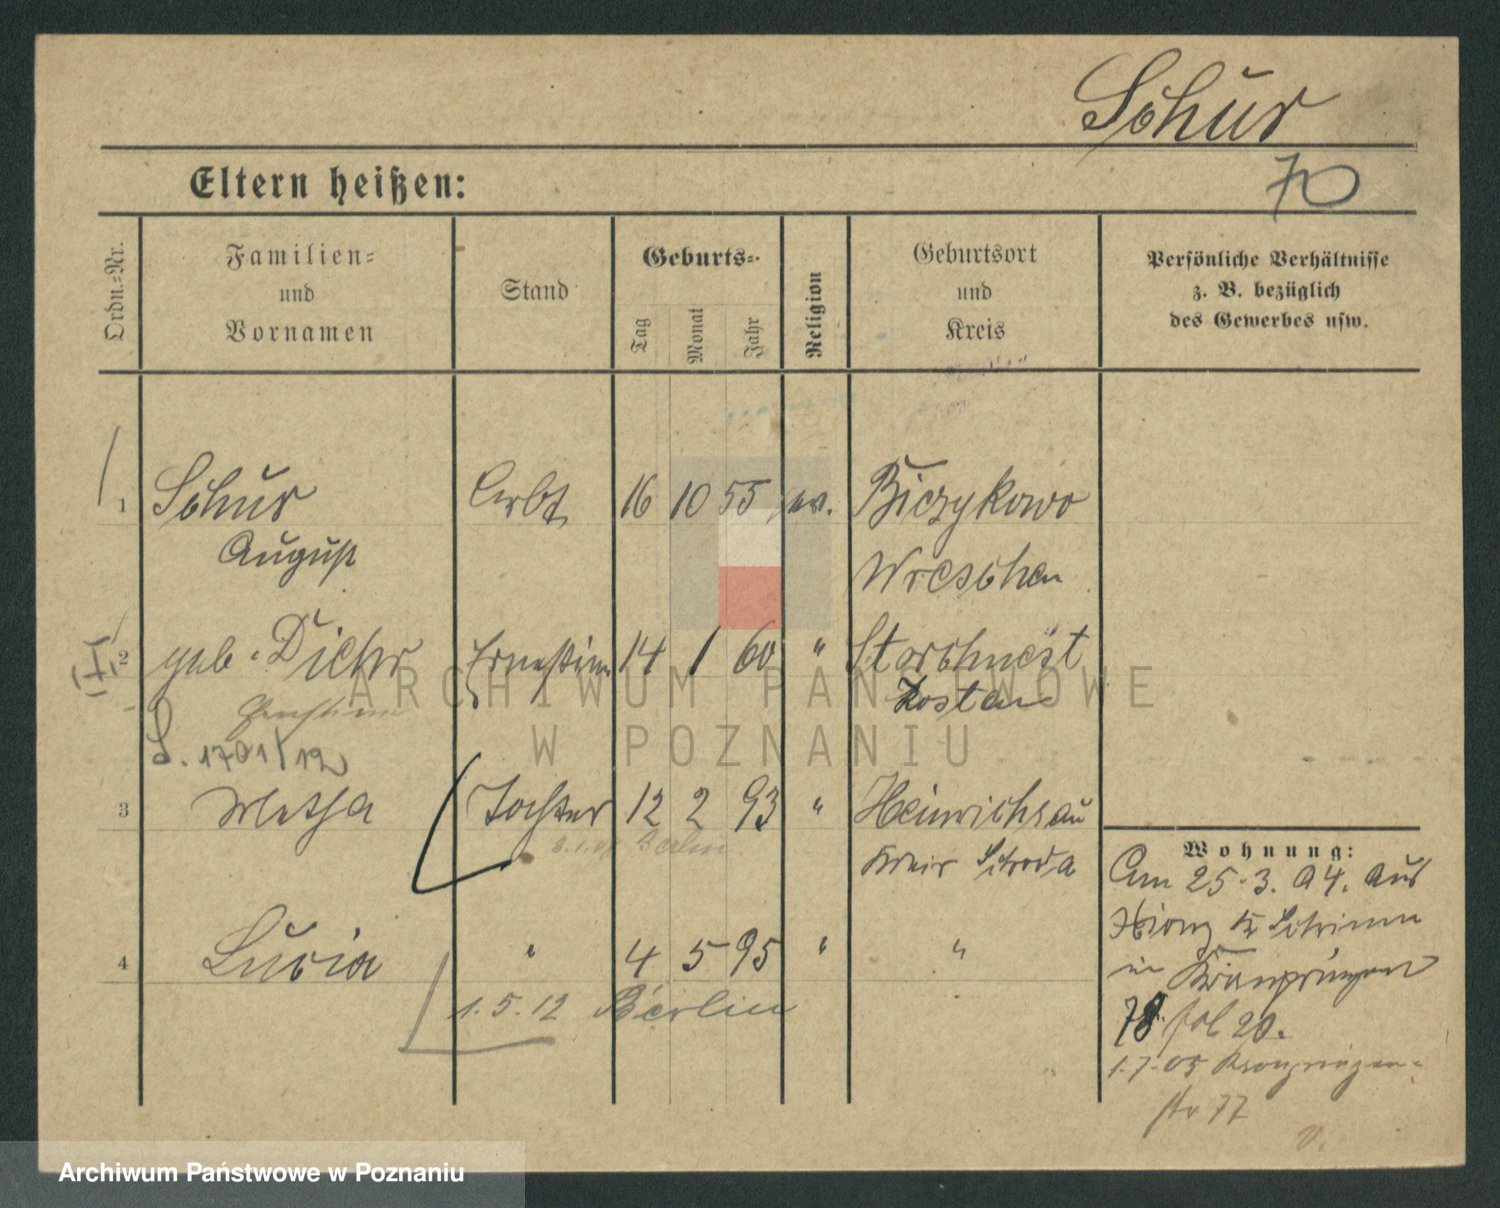 Schur
70
Eltern heißen:
Ordn.-Nr.
Familien-
und
Vornamen
Stand
Geburts-
Tag
Monat
Jahr
Religion
Geburtsort
und
Kreis
Persönliche Verhältnisse
z. B. bezüglich
des Gewerbes usw.
1 Schur Arbt 16 10 55 ev. Biczykowo
August
Wreschen
2 geb. Ernestine 14 1 60 " Storchnest
Kosten
S. 1701/12
3 Metha Tochter 12 2 93 " Heinrichsau
Berlin
Kreis Schroda
4 Lucia " 4 5 95 " "
1.5.12 Berlin
Wohnung:
Am 25.3.04. aus
Xions Kr Schrimm
in
78. fol 20.
1.7.05 Kronprinzen-
str 77
ARCHIWUM PAŃSTWOWE
W POZNANIU
Archiwum Państwowe w Poznaniu